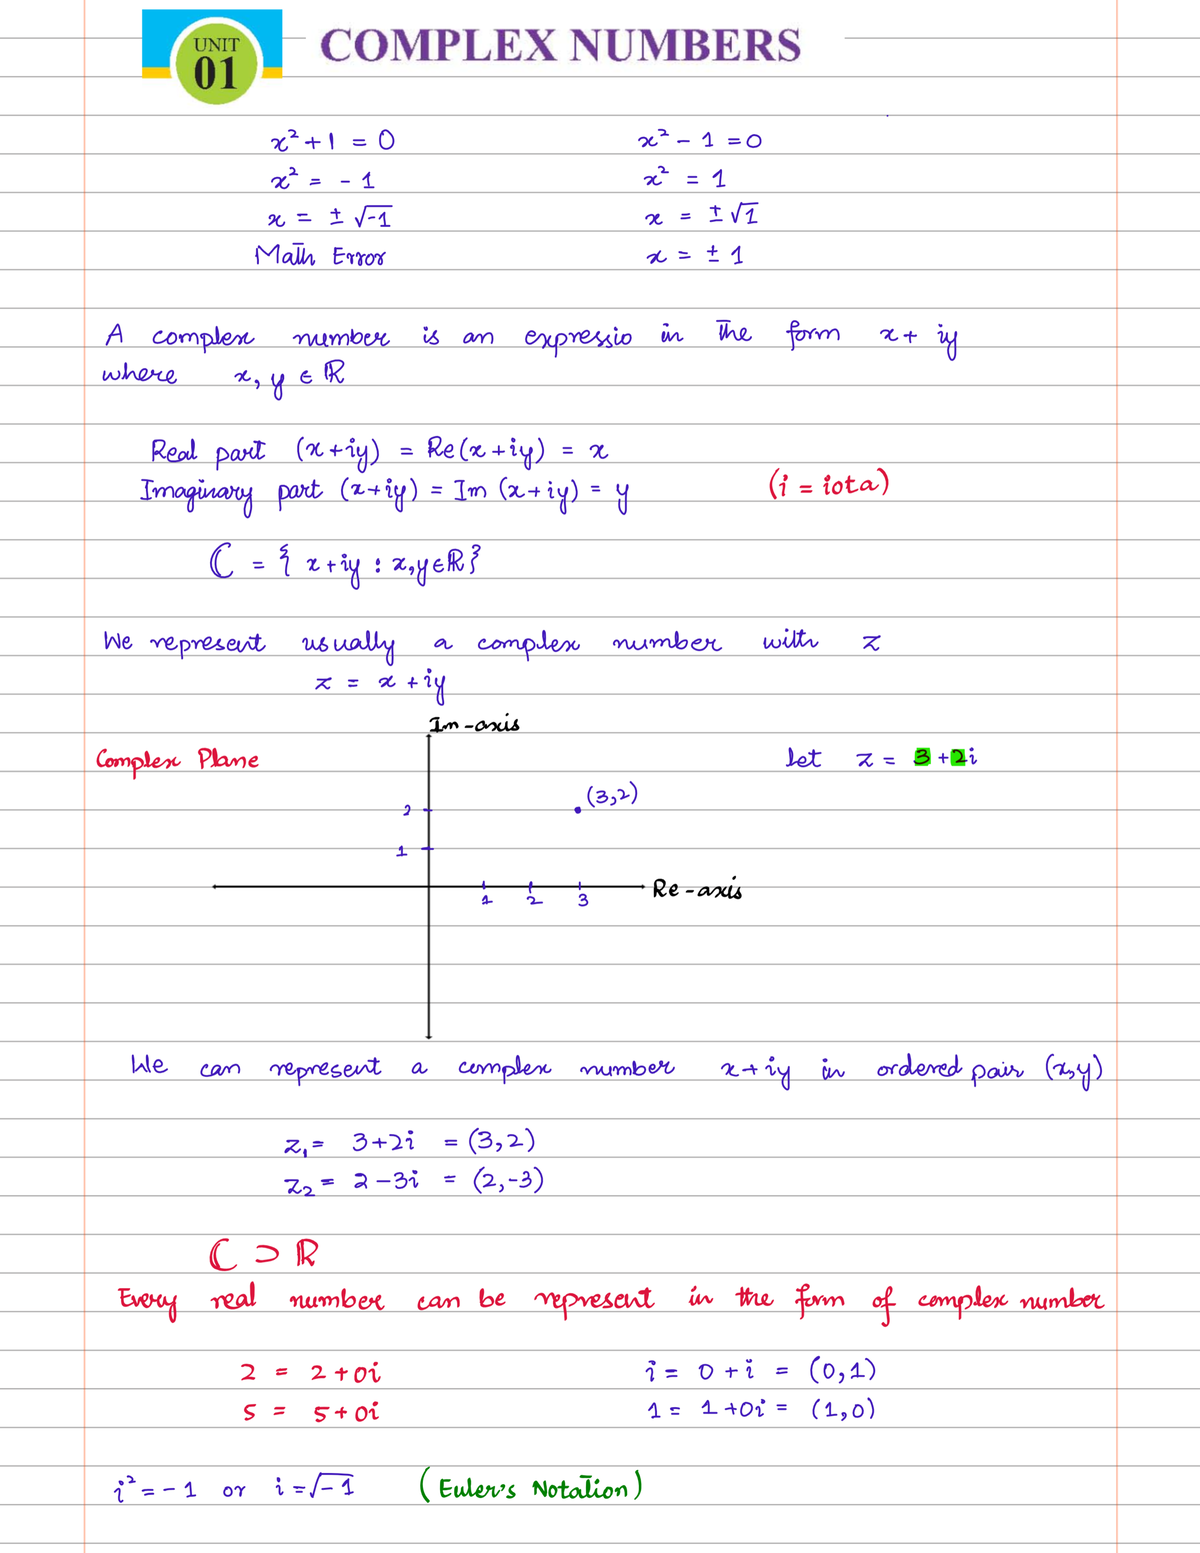 UNIT
01
COMPLEX NUMBERS
x² + 1 = 0
x² = - 1
x = ± √-1
Math Error
x² - 1 = 0
x² = 1
x = ± √1
x = ± 1
A complex number is an expressio in the form x + iy
where x, y ∈ ℝ
Real part (x+iy) = Re(x+iy) = x
Imaginary part (x+iy) = Im (x+iy) = y
(i = iota)
ℂ = { x+iy : x,y∈ℝ}
We represent usually a complex number with z
z = x + iy
Im-axis
Complex Plane
let z = 3 + 2i
(3,2)
2
1
Re-axis
1 2 3
We can represent a complex number x+iy in ordered pair (x,y)
z₁ = 3+2i = (3,2)
z₂ = 2-3i = (2,-3)
ℂ ⊃ ℝ
Every real number can be represent in the form of complex number
2 = 2 + 0i
5 = 5 + 0i
i = 0 + i = (0,1)
1 = 1 + 0i = (1,0)
i² = - 1 or i = √-1 (Euler's Notation)